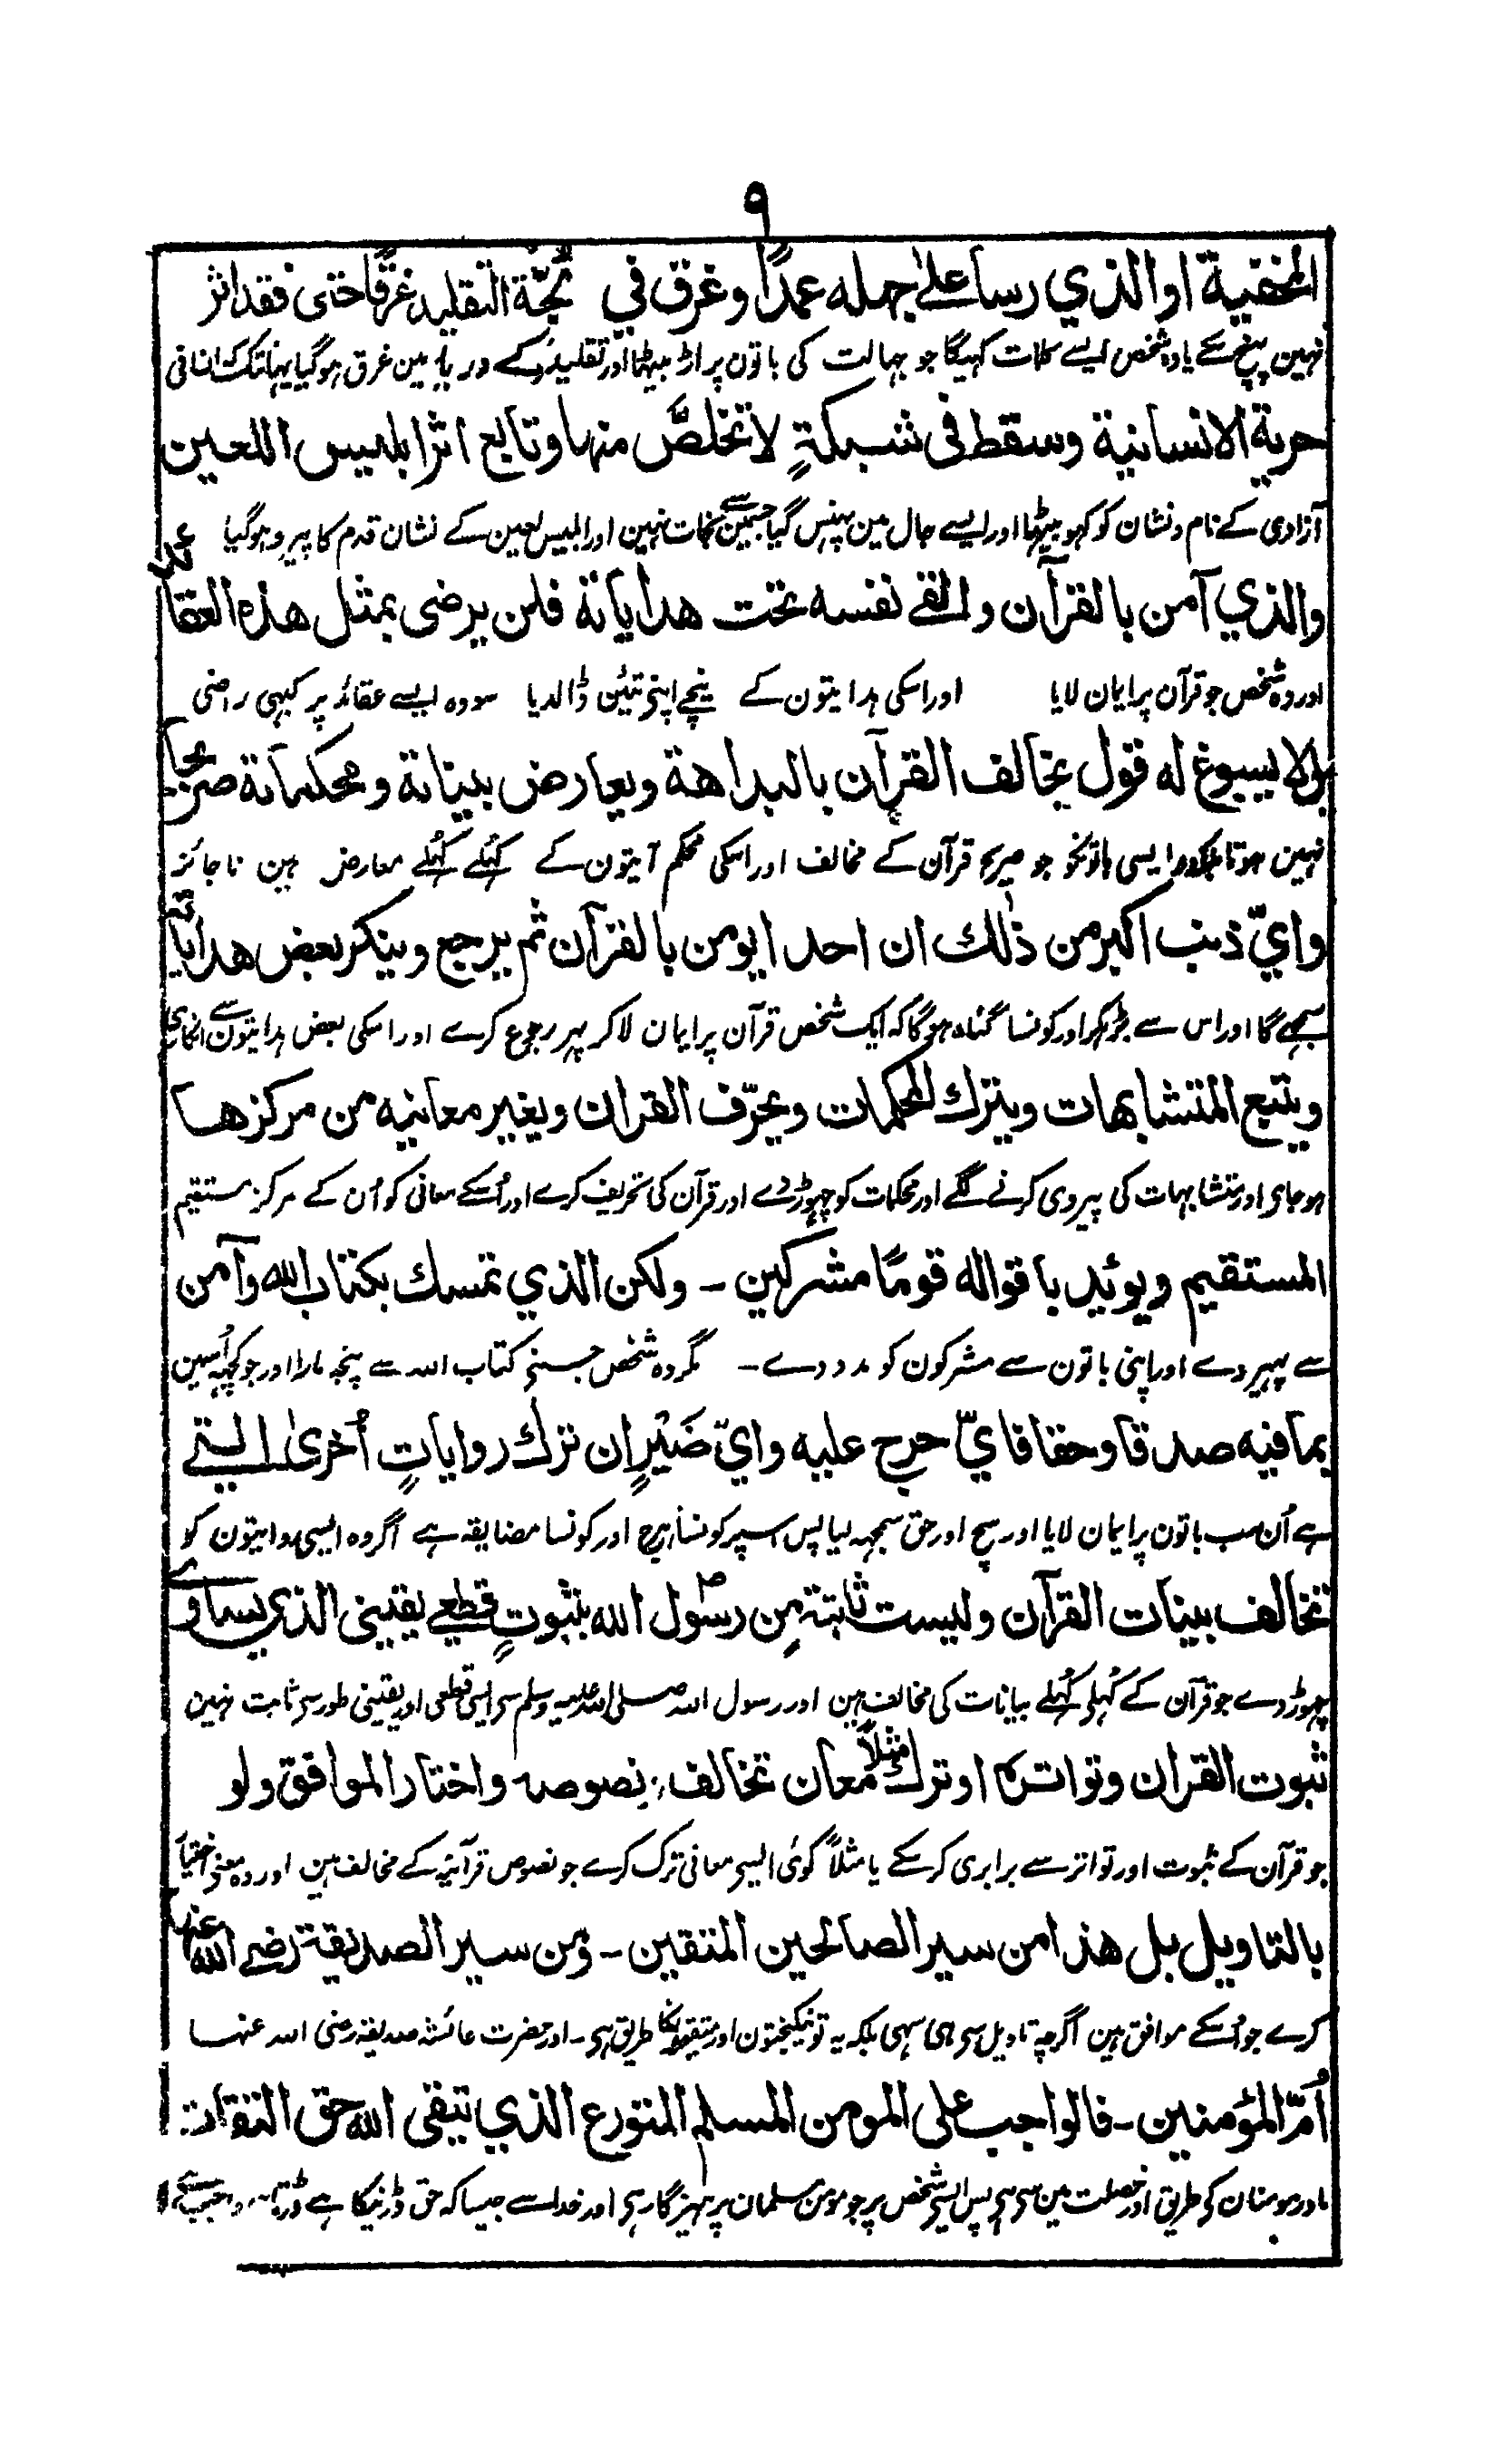 ٩
المخفية او الذي رسا على جهله عمدًا وغرق في لُجّة التقليد غرقًا حتى فقد اثر
نہین پہنچ سکے یا وہ شخص ایسے کلمات کہیگا جو جہالت کی باتون پر اڑ بیٹھا اور تقلید کے دریا مین غرق ہو گیا یہانتک کہ انسانی
حرية الانسانية وسقط فى شبكةٍ لا تخلّص منها وتابع اثر ابليس اللعين
آزادی کے نام و نشان کو کھو بیٹھا اور ایسے جال مین پھنس گیا جسمین سے نجات نہین اور ابلیس لعین کے نشان قدم کا پیرو ہو گیا
والذي آمن بالقرآن والقے نفسه تحت هداياته فلن يرضى بمثل هذه العقائد
اور وہ شخص جو قرآن پر ایمان لایا اور اسکی ہدایتون کے نیچے اپنے تئین ڈالدیا سو وہ ایسے عقائد پر کبھی راضی
بل لا يسوغ له قول يخالف القرآن بالبداهة ويعارض بيناته ومحكماته صريحا
نہین ہوتا بلکہ وہ ایسی باتونکو جو صریح قرآن کے مخالف اور اسکی محکم آیتون کے کھلے کھلے معارض ہین ناجائز
وايّ ذنب اكبر من ذٰلك ان احدا يومن بالقرآن ثم يرجع وينكر بعض هداياته
سمجھے گا اور اس سے بڑہکر اور کونسا گناہ ہو گا کہ ایک شخص قرآن پر ایمان لا کر پھر رجوع کرے اور اسکی بعض ہدایتون سے انکاری
ويتبع المتشابهات ويترك المحكمات ويحرّف القران ويغير معانيه من مركزها
ہو جاے اور متشابہات کی پیروی کرنے لگے اور محکمات کو چھوڑ دے اور قرآن کی تحریف کرے اور اُسکے معانی کو اُن کے مرکز مستقیم
المستقيم ويوئيد باقواله قومًا مشركين - ولكن الذي تمسك بكتاب الله وآمن
سے پھیر دے اور اپنی باتون سے مشرکون کو مدد دے - مگر وہ شخص جسنے کتاب اللہ سے پنجہ مارا اور جو کچھ اُسمین
بما فيه صدقا وحقا فايّ حرج عليه وايّ ضَيْرٍ ان ترك رواياتٍ اُخرىٰ التي
ہے اُن سب باتون پر ایمان لایا اور سچ اور حق سمجھ لیا پس اسپر کونسا حرج اور کونسا مضایقہ ہے اگر وہ ایسی روایتون کو
تخالف بينات القرآن وليست ثابتة من رسول الله بثبوتٍ قطعي يقيني الذي يساوي
چھوڑ دے جو قرآن کے کھلے کھلے بیانات کی مخالف ہین اور رسول اللہ صلی اللہ علیہ وسلم سے ایسی قطعی اور یقینی طور سے ثابت نہین
ثبوت القران وتواتره او ترك مثلاً معان تخالف نصوصه واختار الموافق ولو
جو قرآن کے ثبوت اور تواتر سے برابری کر سکے یا مثلاً کوئی ایسے معانی ترک کرے جو نصوص قرآنیہ کے مخالف ہین اور وہ معنے اختیار
بالتاويل بل هذا من سير الصالحين المتقين - ومن سير الصديقة رضي الله عنها
کرے جو اُسکے موافق ہین اگرچہ تاویل سے ہی سہی بلکہ یہ تو نیکبختون اور متقیونکا طریق ہے - اور حضرت عائشہ صدیقہ رضی اللہ عنہا
اُمّ المؤمنين - فالواجب على المومن المسلم المتورع الذي يتقي الله حق التقات
مادر مومنان کے طریق اور خصلت مین سے ہے پس ایسے شخص پر جو مومن مسلمان پرہیزگار ہے اور خدا سے جیسا کہ حق ڈرنیکا ہے ڈرتا واجب ہے